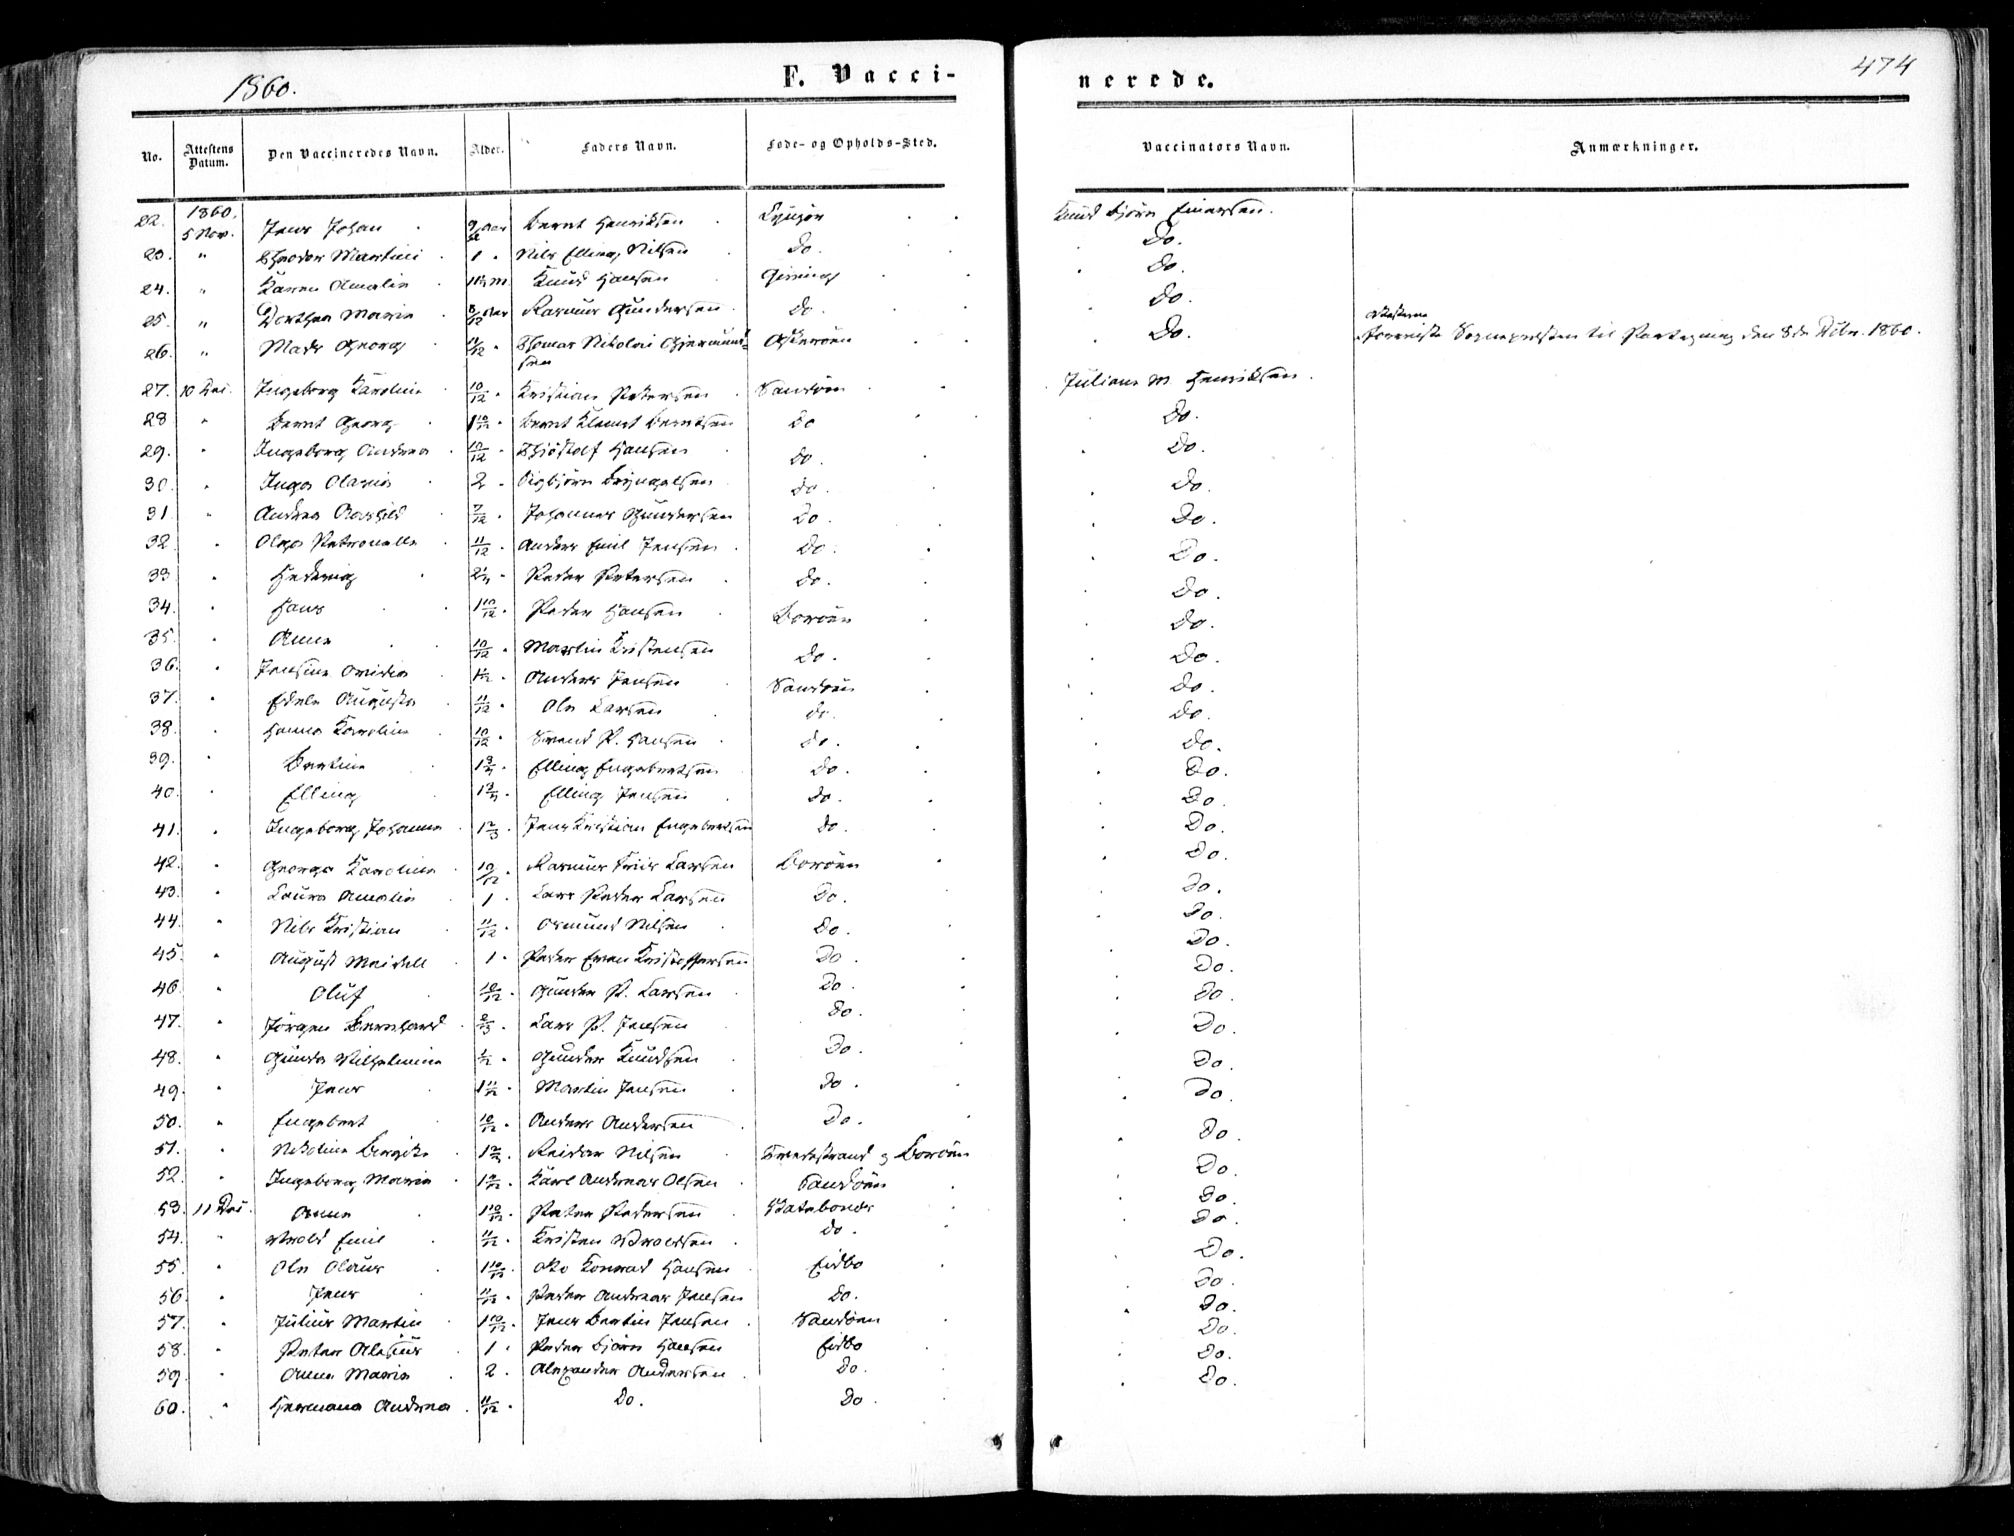 1860.
F. Vacci-
nerede.
474
No. Attestens Datum. Den Vaccineredes Navn. Alder. Faders Navn. Føde- og Opholds-Sted. Vaccinators Navn. Anmærkninger.
22. 1860. 5 Nov. Jens Johan 9/12 Aar Bernt Henriksen Lyngør Knud Bjørn Einersen.
23. " Theodor Martini 1 Nils Elling Nilsen Do. Do.
24. " Karen Amalie Knud Hansen Gjeving Do.
25. " Dorthea Marie 8/12 Aar Rasmus Gundersen Do. Do.
26. " Mads Georg 11/12 Thomas Nikolai Gjermundsen Askerøen Do. Sognepresten til den 8de 1860.
27. 10 Dec. Ingeborg Karoline 10/12 Kristian Petersen Sandøen Juliane M. Henriksen.
28 " Bernt Georg 1 10/12 Bernt Klemet Berntsen Do Do.
29. " Ingeborg Andrea 10/12 Thjøstolf Hansen Do. Do.
30. " Inga Olavia 2 Sigbjørn Bryngelsen Do. Do.
31. " Andrea Raghild 7/12 Johannes Gundersen Do. Do.
32. " Olga Petronelle 11/12 Anders Emil Jensen Do. Do.
33 " Hedevig 2 1/4 Peder Petersen Do. Do.
34. " Hans 1 10/12 Peder Hansen Borøen Do.
35. " Anne 10/12 Martin Kristensen Do. Do.
36. " Jensine Ovidia 1 1/2 Anders Jensen Sandøen Do.
37. " Edele Augusta 11/12 Ole Larsen do. Do.
38. " Hanna Karoline 10/12 Svend P. Hansen Do. Do.
39. " Bertine 1 3/4 Elling Engebertsen Do. Do.
40. " Elling 1 3/4 Elling Jensen Do. Do.
41. " Ingeborg Johanne 1 2/3 Jens Kristian Engebertsen Do. Do.
42. " George Karoline 10/12 Rasmus Friis Larsen Borøen Do.
43. " Laura Amalie 1 Lars Peder Larsen Do. Do.
44. " Nils Kristian 11/12 Osmund Nilsen Do. Do.
45. " August Meidell 1 Peder Even Kristoffersen Do. Do.
46. " Oluf 10/12 Gunder P. Larsen Do. Do.
47. " Jørgen Bernhard 2/3 Lars P. Jensen Do. Do.
48. " Gunda Vilhelmine 1/2 Gunder Knudsen Do. Do.
49. " Jens 1 11/12 Martin Jensen Do. Do.
50. " Engebret 10/12 Anders Andersen Do. Do.
51. " Nikoline Bergitte 1 2/3 Reidar Nilsen Tvedestrand og Borøen Do.
52. " Ingeborg Marie 1 9/12 Karl Andreas Olsen Sandøen Do.
53. 11 Dec. Anne 1 10/12 Peter Pedersen Do.
54. " Vrold Emil 11/12 Kristen Vroldsen Do. Do.
55. " Ole Olaus 1 10/12 Konrad Hansen Eidbo Do.
56. " Jens 11/12 Peder Andreas Jensen Do. Do.
57. " Julius Martin 1 10/12 Jens Bertin Jensen Sandøen Do.
58. " Peter Alesius 1 Peder Bjørn Hansen Eidbo Do.
59. " Anne Marie 2 Alexander Andersen Do. Do.
60. " Hermana Andrea 11/12 Do. Do. Do.